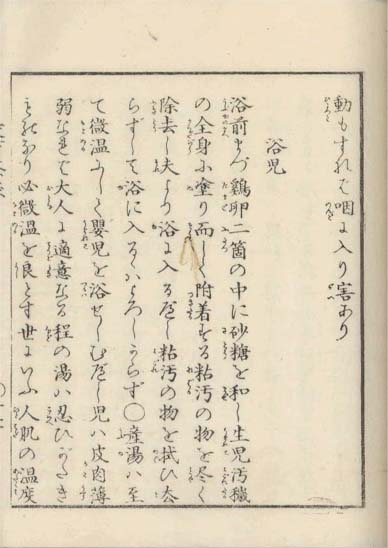 動もすれバ咽に入り害あり
浴児
浴前まづ鶏卵二箇の中に砂糖を和し生児汚穢
の全身に塗り而して附着する粘汚の物を尽く
除去し夫より浴に入るべし粘汚の物を拭ひ去
らずして浴に入るハよろしからず〇産湯ハ至
て微温にして嬰児を浴せしむべし児ハ皮肉薄
弱なれバ大人に適意なる程の湯ハ忍びがたき
ものなり必微温を良とす世にいふ人肌の温度